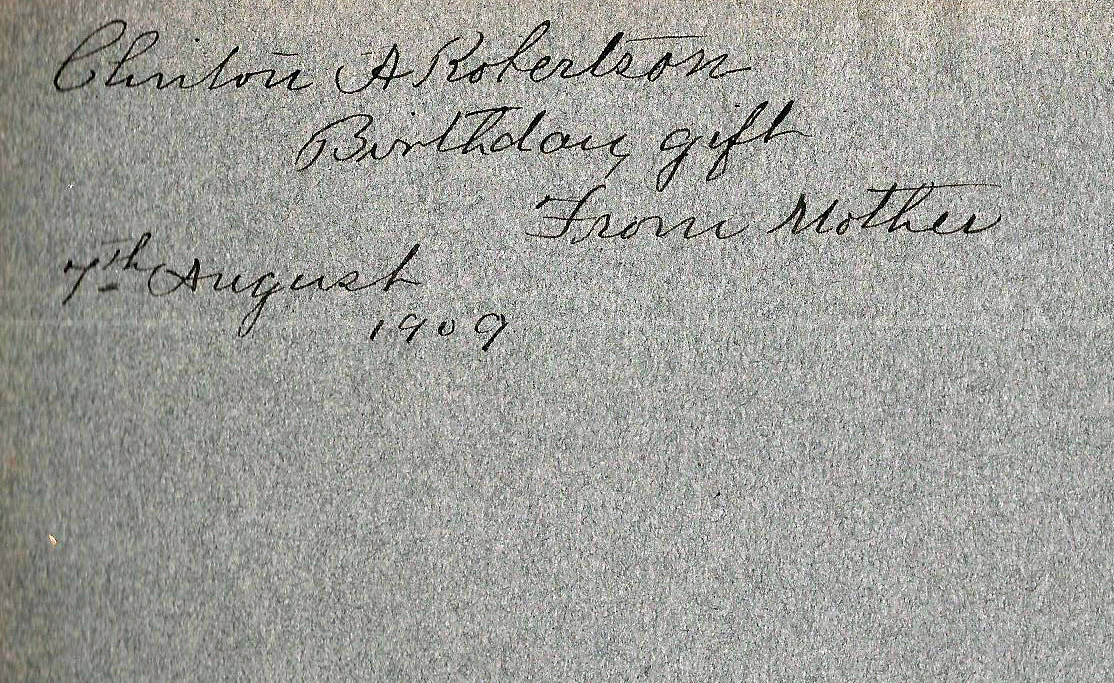 Clinton A Robertson
Birthday gift
From Mother
7th August
1909